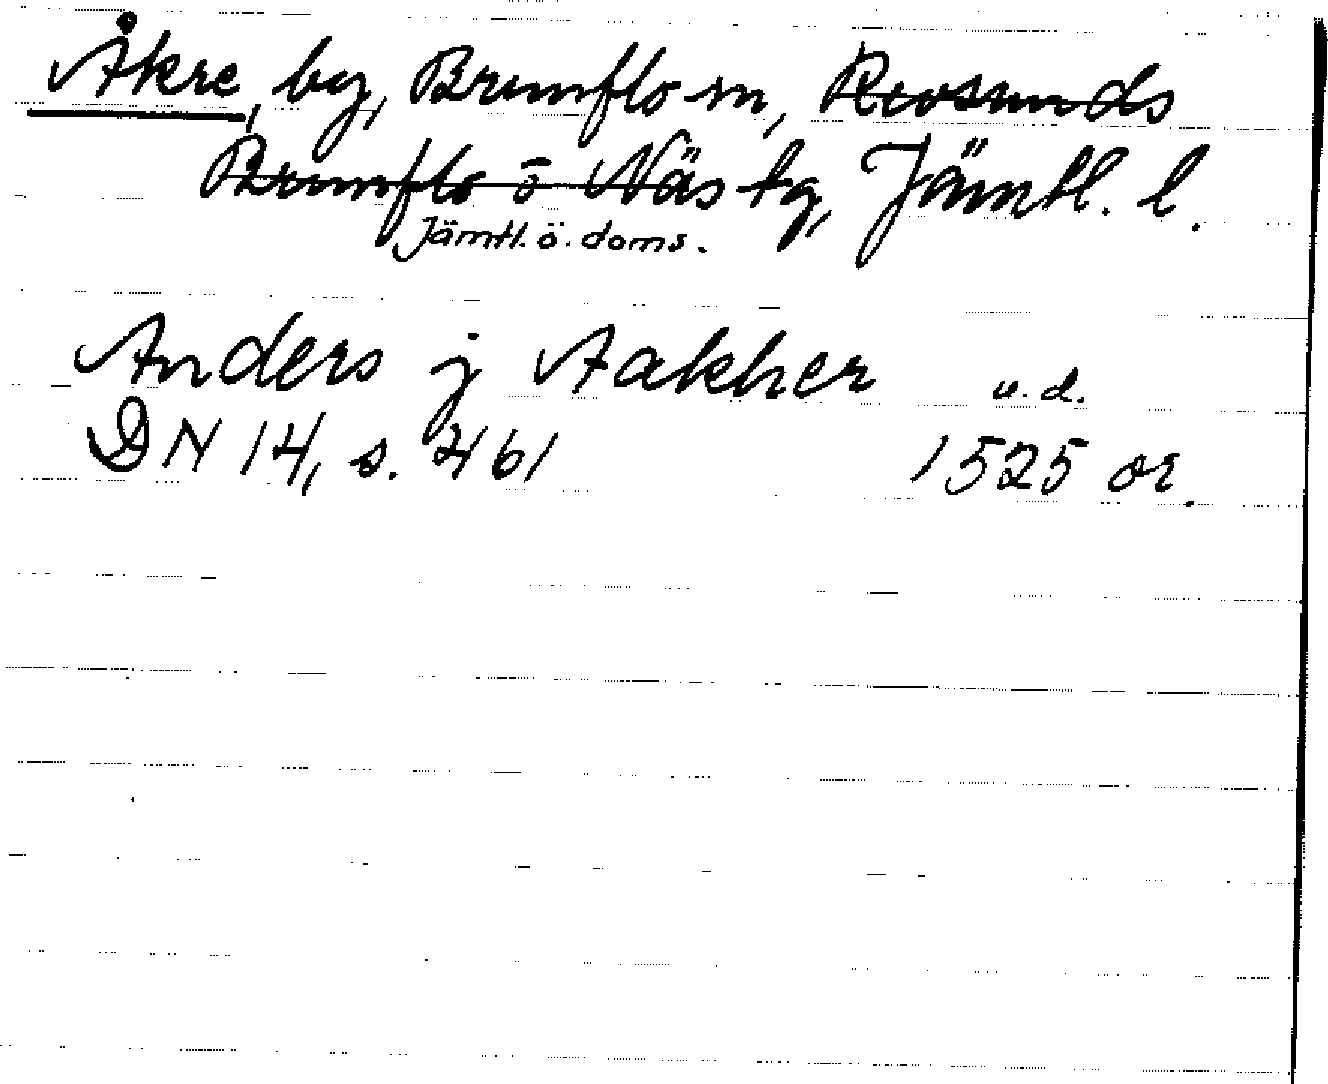 Åkre, by, Brunflo sn, Revsunds
Brunflo o Näs tg, Jämtl. l.
Jämtl. ö. doms.
Anders j Aakher u. d.
DN 14, s. 461 1525 or.